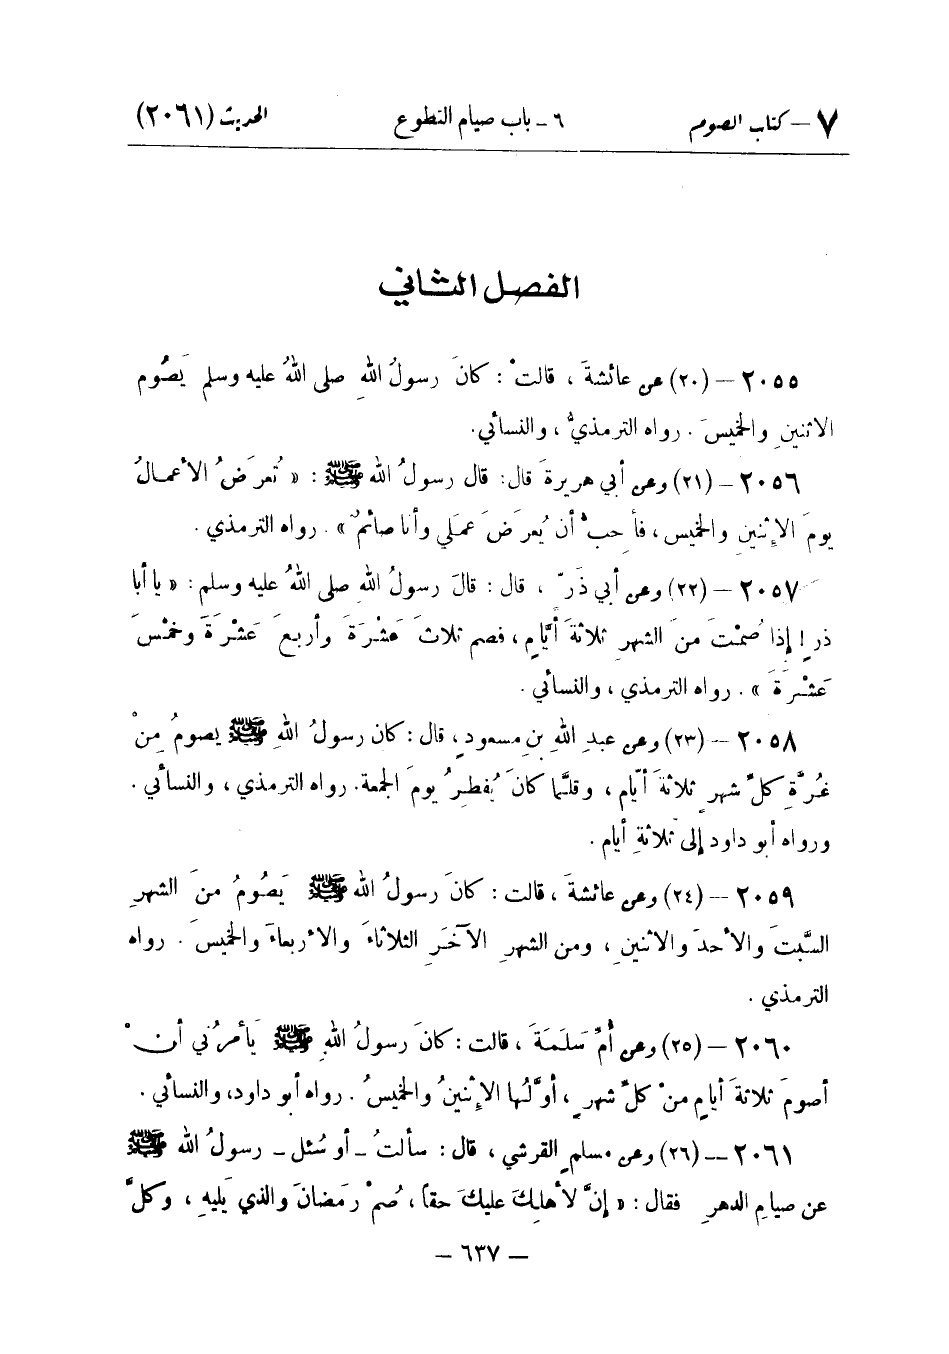 ٧ – كتاب الصوم ٦ - باب صيام التطوع الحديث (٢٠٦١)
الفصل الثاني
٢٠٥٥ – (٢٠) عن عائشةَ ، قالتْ : كانَ رسولُ اللهِ صلى اللهُ عليه وسلم يَصُوم
الاثنينِ والخميسَ . رواه الترمذيُّ ، والنسائي.
٢٠٥٦ – (٢١) وعن أبي هريرةَ قال: قال رسولُ الله ﷺ : « تُعرَضُ الأعمـالُ
يومَ الاثنينِ والخميسِ ، فأُحبُّ أن يُعرَضَ عمَلي وأنا صائمٌ » . رواه الترمذي .
٢٠٥٧ – (٢٢) وعن أبي ذَرّ ، قال : قالَ رسولُ اللهِ صلى اللهُ عليه وسلم : « يا أبا
ذرٍ ! إذا صُمْتَ منَ الشهرِ ثلاثةَ أيَّامٍ ، فصم ثلاثَ عَشْرَةَ وأربعَ عَشْرَةَ وخمْسَ
عَشْرَةَ » . رواه الترمذي ، والنسائي .
٢٠٥٨ – (٢٣) وعن عبدِ اللهِ بنِ مسعودٍ ، قال : كان رسولُ اللهِ ﷺ يصومُ مِنْ
غُرَّةِ كلِّ شهرٍ ثلاثةَ أيّامٍ ، وقلَّما كانَ يُفطِرُ يومَ الجمعة. رواه الترمذي ، والنسائي .
ورواه أبو داود إلى ثلاثةِ أيام .
٢٠٥٩ – (٢٤) وعن عائشةَ ، قالت : كانَ رسولُ الله ﷺ يَصُومُ منَ الشهرِ
السَّبتَ والأحدَ والاثنينِ ، ومن الشهرِ الآخَرِ الثلاثاءَ والأربعاءَ والخميسَ . رواه
الترمذي .
٢٠٦٠ – (٢٥) وعن أُمِّ سَلَمَةَ ، قالت : كانَ رسولُ اللهِ ﷺ يَأمرُني أنْ
أصومَ ثلاثةَ أيامٍ منْ كلِّ شهرٍ ، أوَّلُها الاثنينُ والخميسُ . رواه أبو داود، والنسائي .
٢٠٦١ – (٢٦) وعن مسلمٍ القرشي ، قال : سألتُ ـ أو سُئل ـ رسولُ الله ﷺ
عن صيامِ الدهرِ فقال : « إنَّ لأهلِكَ عليكَ حقاً ، صُمْ رمَضانَ والذي يَليهِ ، وكلَّ
– ٦٣٧ –